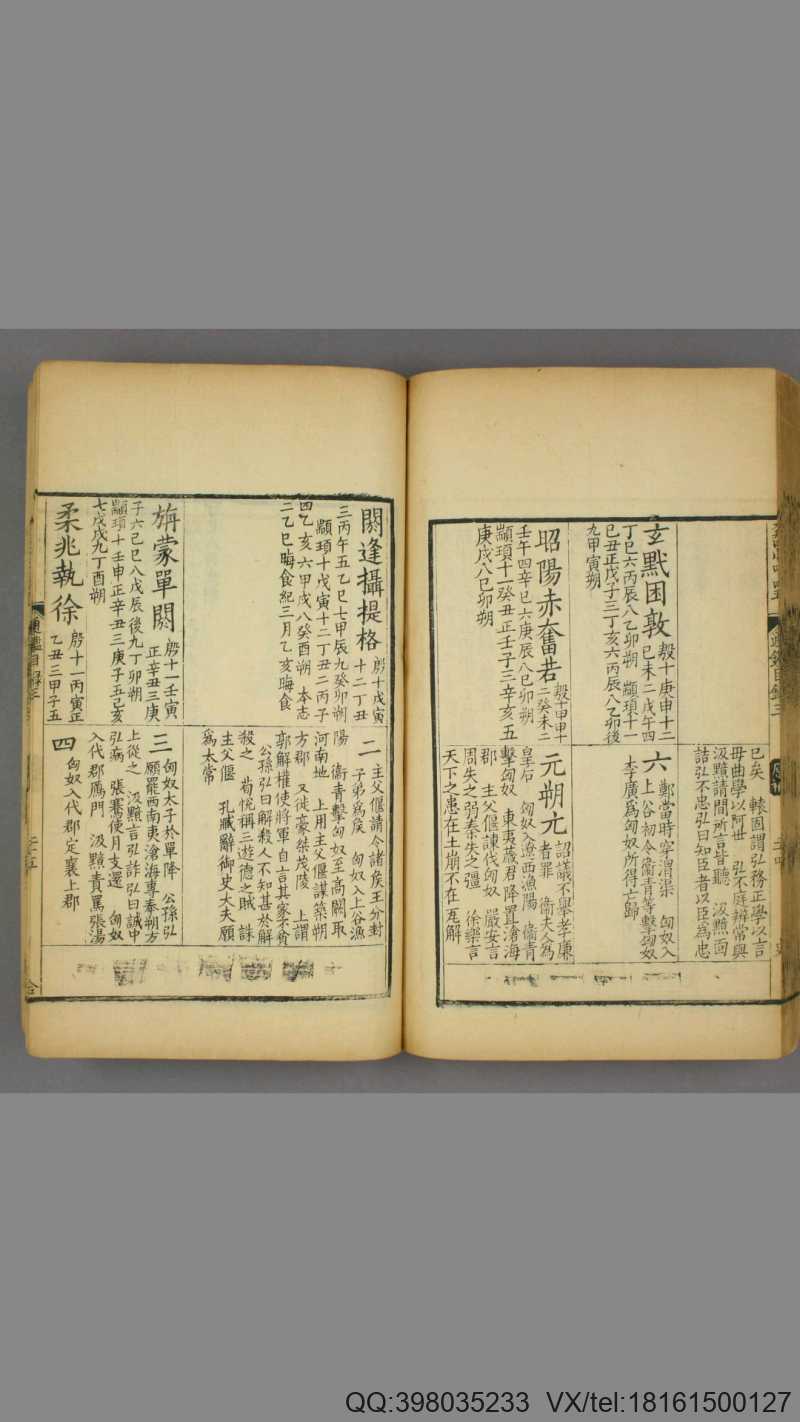 已矣　轅固謂弘務正學以言
毋曲學以阿世　弘不庭辯常與
汲黯請間所言皆聽　汲黯面
詰弘不忠弘曰知臣者以臣為忠
玄黓困敦
殷十庚申十二
己未二戊午四
丁巳六丙辰八乙卯朔　顓頊十一
己丑正戊子三丁亥六丙辰八乙卯後
九甲寅朔
六
鄭當時穿渭渠　匈奴入
上谷初令衞青等擊匈奴
李廣為匈奴所得亡歸
昭陽赤奮若
二癸未二
壬午四辛巳六庚辰八巳卯朔
顓頊十一癸丑正壬子三辛亥五
庚戌八巳卯朔
元朔元
詔議不舉孝廉
者罪　衞夫人為
皇后　匈奴入遼西漁陽　衞青
擊匈奴　東夷薉君降置滄海
郡　主父偃諫伐匈奴　嚴安言
周失之弱秦失之彊　徐樂言
天下之患在土崩不在瓦解
閼逢攝提格
殷十戊寅
十二丁丑
三丙午五乙巳七甲辰九癸卯朔
顓頊十戊寅十二丁丑二丙子
四乙亥六甲戌八癸酉朔　本志
二乙巳晦食紀三月乙亥晦食
二
主父偃請令諸矦王分封
子弟為矦　匈奴入上谷漁
陽　衞青擊匈奴至高闕取
河南地　上用主父偃謀築朔
方郡　又徙豪桀茂陵　上謂
郭解權使將軍自言其家不貧
公孫弘曰解殺人不知甚於解
殺之　荀恱稱三遊德之賊　誅
主父偃　孔臧辭御史大夫願
為太常
旃蒙單閼
殷十一壬寅
正辛丑三庚
子六己巳八戊辰後九丁卯朔
顓頊十壬申正辛丑三庚子五己亥
七戊戌九丁酉朔
三
匈奴太子於單降　公孫弘
願罷西南夷滄海專奉朔方
上從之　汲黯言弘詐弘曰誠中
弘病　張騫使月支還　匈奴
入代郡鴈門　汲黯責罵張湯
柔兆執徐
殷十一丙寅正
乙丑三甲子五
四
匈奴入代郡定襄上郡
通鑑目録三
QQ:398035233 VX/tel:18161500127